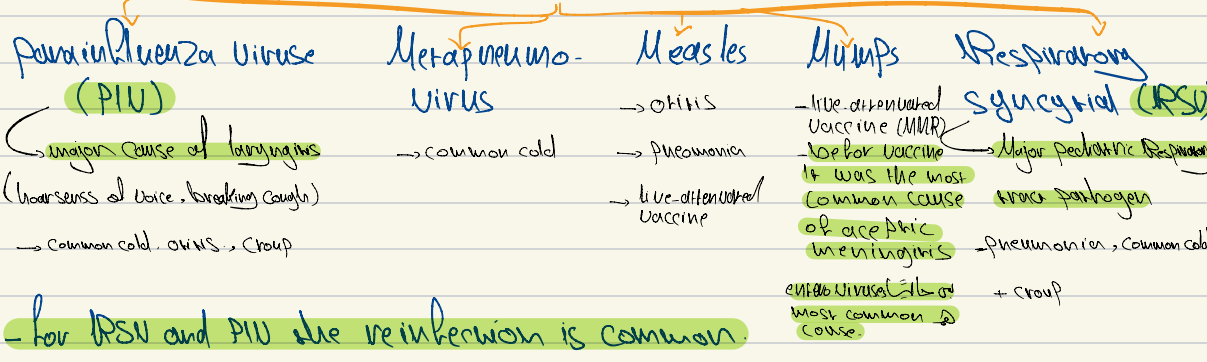 parainfluenza viruse
(PIV)
→ major cause of laryngitis
(hoarsenss of voice, breaking cough)
→ common cold, otitis, croup
Metapneumo-
virus
→ common cold
Measles
→ otitis
→ pneomonia
→ live-attenuated
vaccine
Mumps
- live-attenuated
vaccine (MMR)
- befor vaccine
it was the most
common cause
of aceptic
meningitis
enteroviruses
most common
cause.
Respiratory
syncytial (RSV)
→ Major pediatric Respirator
tract pathogen
- pneumonia, common cold
+ croup
- for RSV and PIV the reinfection is common.